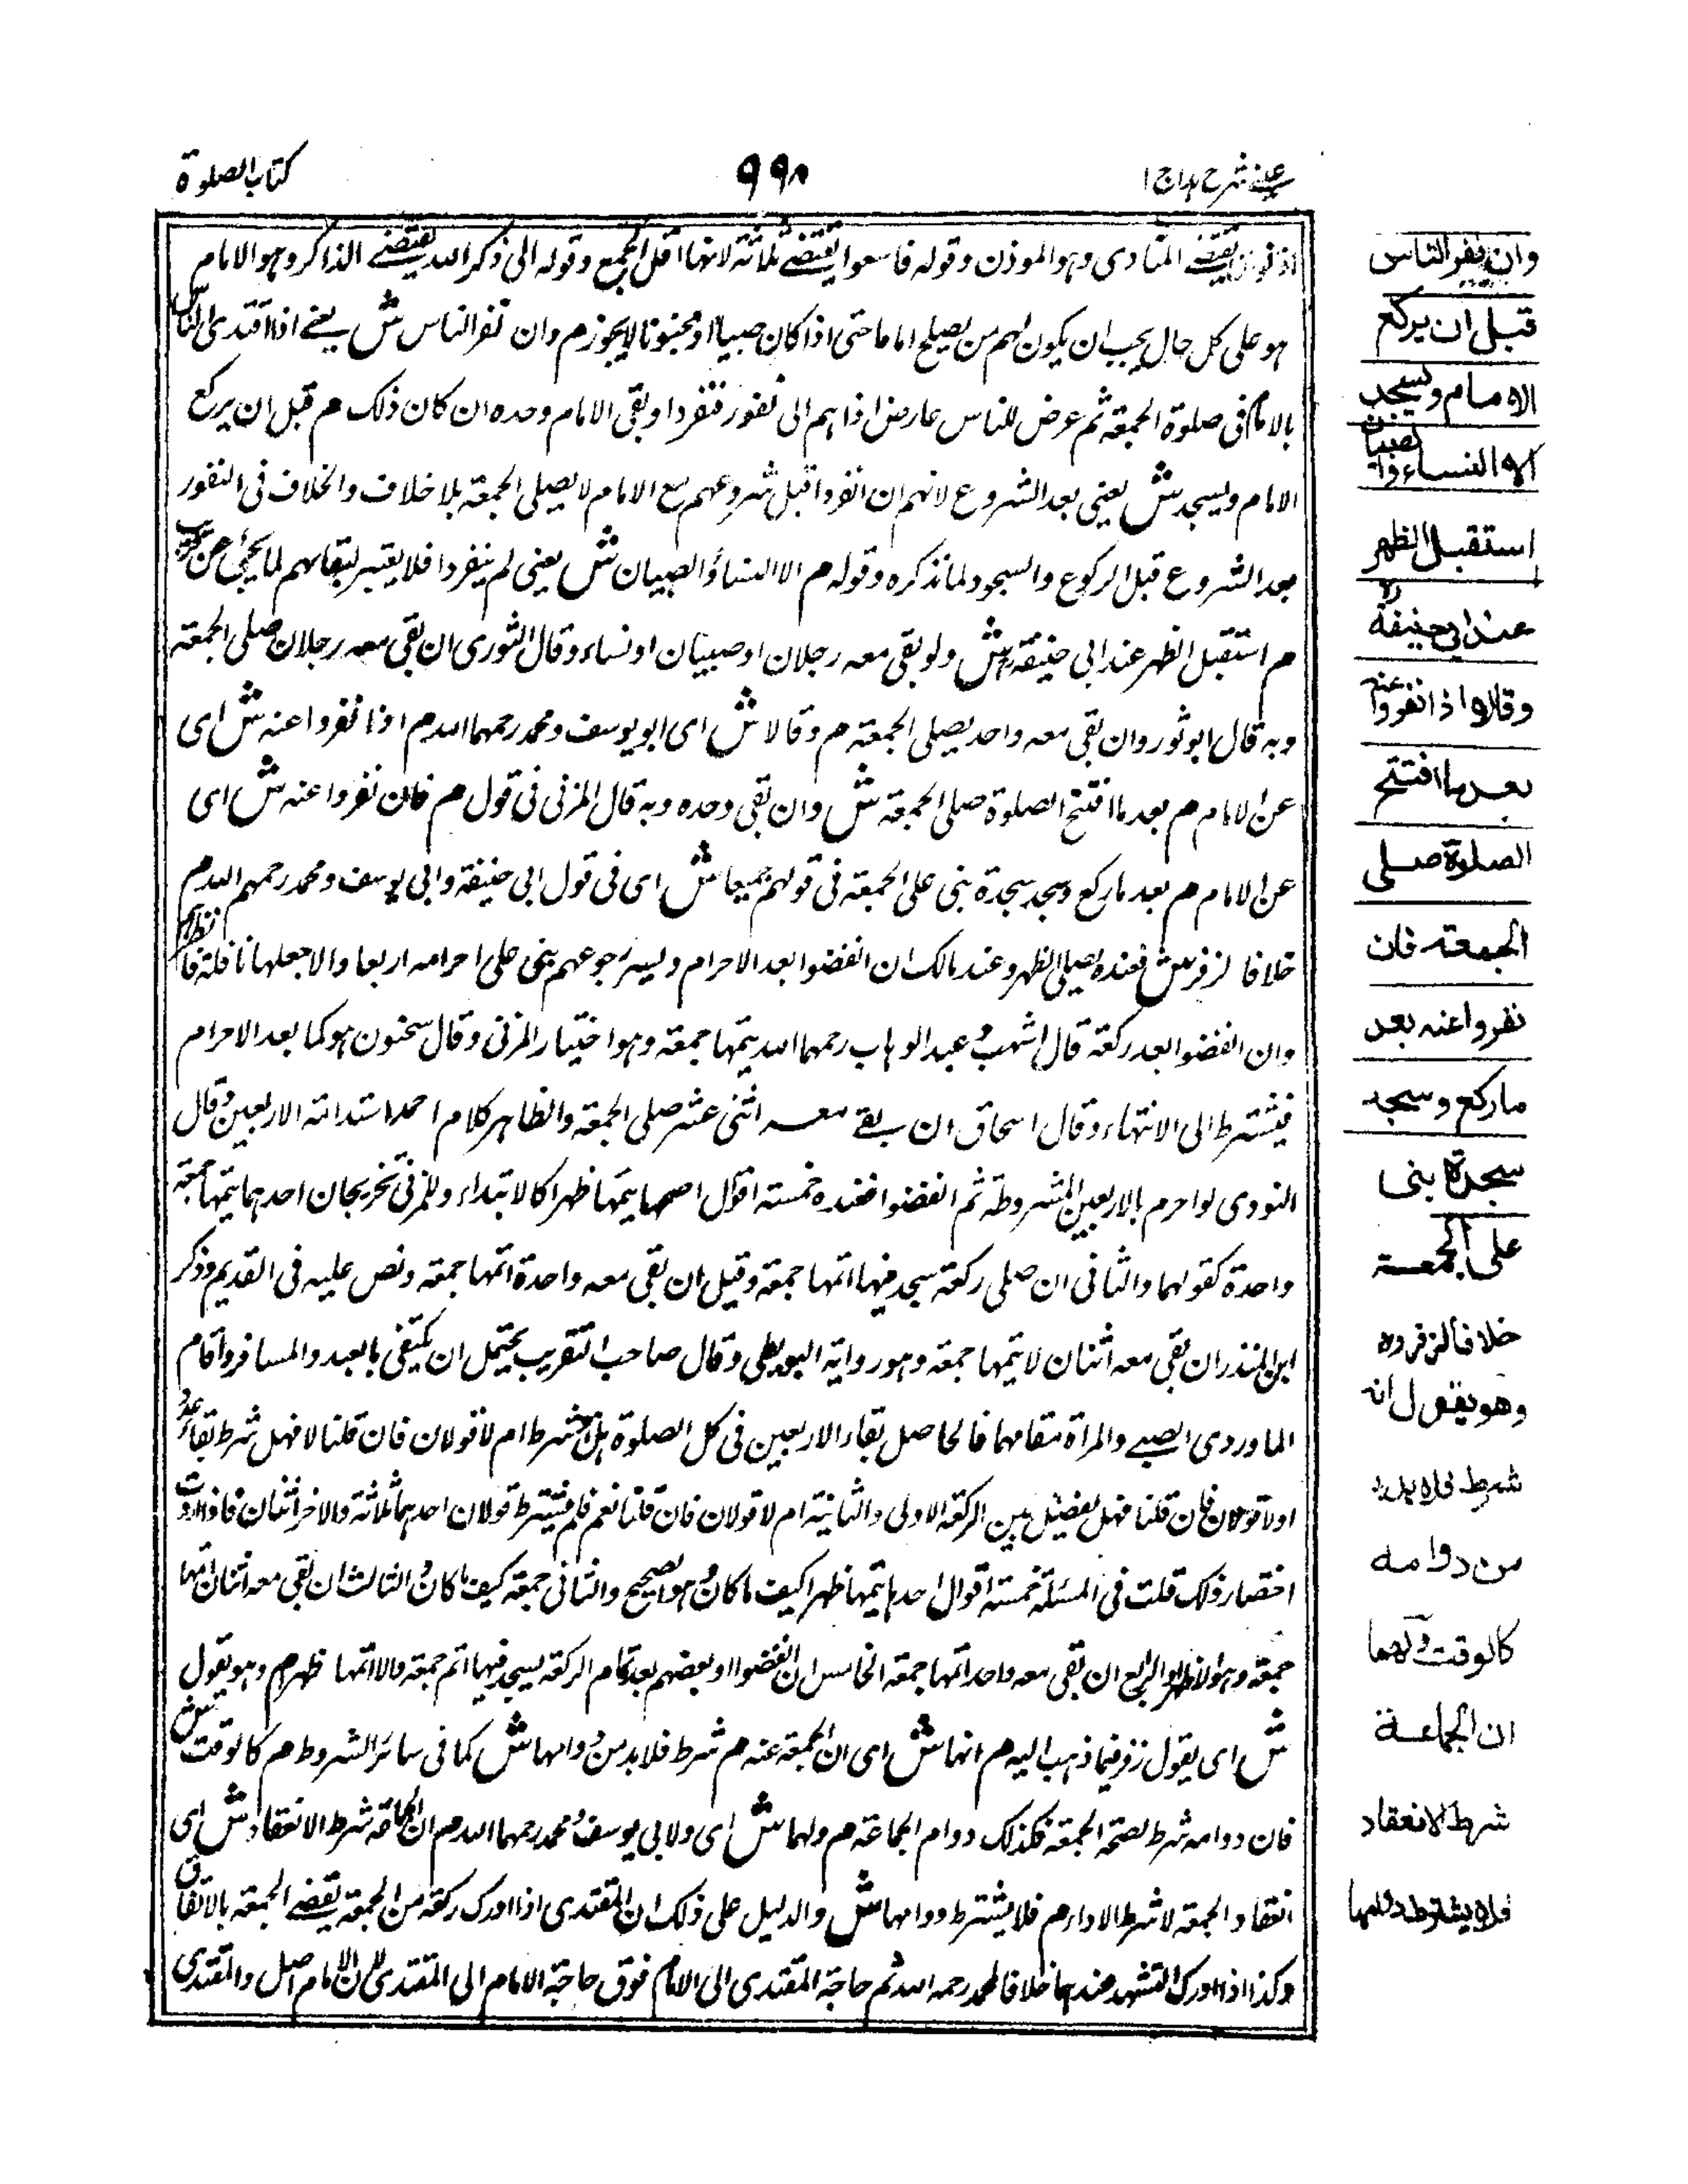 عينى شرح هداج ا
۹۹۸
كتاب الصلوة
اذا نودى يقتضى المنادى وهو الموذن وقوله فاسعوا يقتضى ثلاثة لانها اقل الجمع وقوله الى ذكر الله يقتضى الذاكر وهو الامام
هو على كل حال يجب ان يكون لهم من يصلح اماما حتى اذا كان صبيا او مجنونا لا يجوز م وان نفر الناس ش يعنى اذا اقتدى الناس
بالامام فى صلوة الجمعة ثم عرض للناس عارض اذا هم الى نفور فنفردا وبقى الامام وحده ان كان ذلك م قبل ان يركع
الامام ويسجد ش يعنى بعد الشروع لانهم ان نفردا قبل شروعهم مع الامام لا يصلى الجمعة بلا خلاف والخلاف فى النفور
بعد الشروع قبل الركوع والسجود لما نذكره وقوله م الا النساء والصبيان ش يعنى لم ينفردا فلا يعتبر ببقائهم لما يجئ عن قريب
م استقبل الظهر عند ابى حنيفة ش ولو بقى معه رجلان او صبيان او نساء وقال الثورى ان بقى معه رجلان صلى الجمعة
وبه قال ابو ثور وان بقى معه واحد يصلى الجمعة م وقالا ش اى ابو يوسف ومحمد رحمهما الله م اذا نفروا عنه ش اى
عن الامام م بعد ما افتتح الصلوة صلى الجمعة ش وان بقى وحده وبه قال المزنى فى قول م فان نفروا عنه ش اى
عن الامام م بعد ما ركع وسجد سجدة بنى على الجمعة فى قولهم جميعا ش اى فى قول ابى حنيفة وابى يوسف ومحمد رحمهم الله م
خلافا لزفر ش فعنده يصلى الظهر وعند مالك ان انفضوا بعد الاحرام وليس رجوعهم بنى على احرامه اربعا والا جعلها نافلة
وان انفضوا بعد ركعة قال اشهب وعبد الوهاب رحمهما الله يتمها جمعة وهو اختيار المزنى وقال سحنون هو كما بعد الاحرام
فيشترط الى الانتهاء وقال اسحاق ان بقى معه اثنى عشر صلى الجمعة والظاهر كلام احمد استدامة الاربعين وقال
النووى لو احرم بالاربعين المشروطة ثم انفضوا فعنده خمسة اقوال اصحها يتمها ظهرا كالابتداء وللمزنى تخريجان احدهما يتمها جمعة
واحدة كقولهما والثانى ان صلى ركعة سجد فيها اتمها جمعة وقيل ان بقى معه واحدة اتمها جمعة ونص عليه فى القديم وذكر
ابن المنذر ان بقى معه اثنان لا يتمها جمعة وهو رواية البويطى وقال صاحب التقريب يحتمل ان يكتفى بالعبد والمسافر واقام
الماوردى الصبى والمراة مقامهما فالحاصل بقاء الاربعين فى كل الصلوة هل شرط ام لا قولان فان قلنا لا فهل شرط بقاء عدد
او لا قولان فان قلنا فهل يفصل بين الركعة الاولى والثانية ام لا قولان فان قلنا نعم فلم يشترط قولان احدهما ثلاثة والاخر اثنان فاذا اردت
اختصار ذلك قلت فى المسئلة خمسة اقوال احدها يتمها ظهرا كيف ما كان وهو الصحيح والثانى جمعة كيف ما كان والثالث ان بقى معه اثنان اتمها
جمعة وهو الاظهر والرابع ان بقى معه واحد اتمها جمعة الخامس ان انفضوا او بعضهم بعد تمام الركعة يسجد فيها اتم جمعة والا اتمها ظهر م وهو يقول
ش اى يقول زفر فيما ذهب اليه م انها ش اى ان الجمعة عنه م شرط فلا بد من دوامها ش كما فى سائر الشروط م كالوقت ش
فان دوامه شرط لصحة الجمعة فكذلك دوام الجماعة م ولهما ش اى ولابى يوسف ومحمد رحمهما الله م ان الجماعة شرط الانعقاد ش اى
انعقاد الجمعة لا شرط الادار م فلا يشترط دوامها ش والدليل على ذلك ان المقتدى اذا ادرك ركعة من الجمعة يقضى الجمعة بالاتفاق
وكذا اذا ادرك التشهد عندهما خلافا لمحمد رحمه الله ثم حاجة المقتدى الى الامام فوق حاجة الامام الى المقتدى لان الامام اصل والمقتدى
وان نفر الناس
قبل ان يركع
الامام ويسجد
الا النساء والصبيان
استقبل الظهر
عند ابى حنيفة
وقالا اذا نفروا عنه
بعد ما افتتح
الصلوة صلى
الجمعة فان
نفروا عنه بعد
ما ركع وسجد
سجدة بنى
على الجمعة
خلافا لزفر
وهو يقول انه
شرط فلا بد
من دوامه
كالوقت ولهما
ان الجماعة
شرط الانعقاد
فلا يشترط دوامها